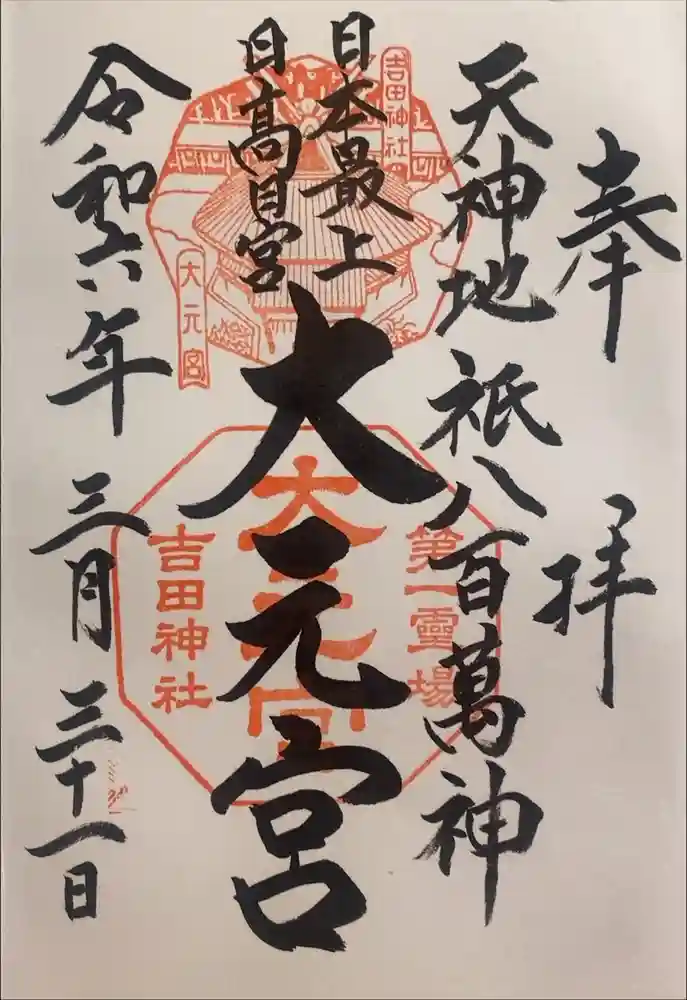 奉拝
天神地祇八百萬神
日本最上
日高日宮
大元宮
令和六年三月三十一日
吉田神社
大元宮
第一霊場
大元宮
吉田神社